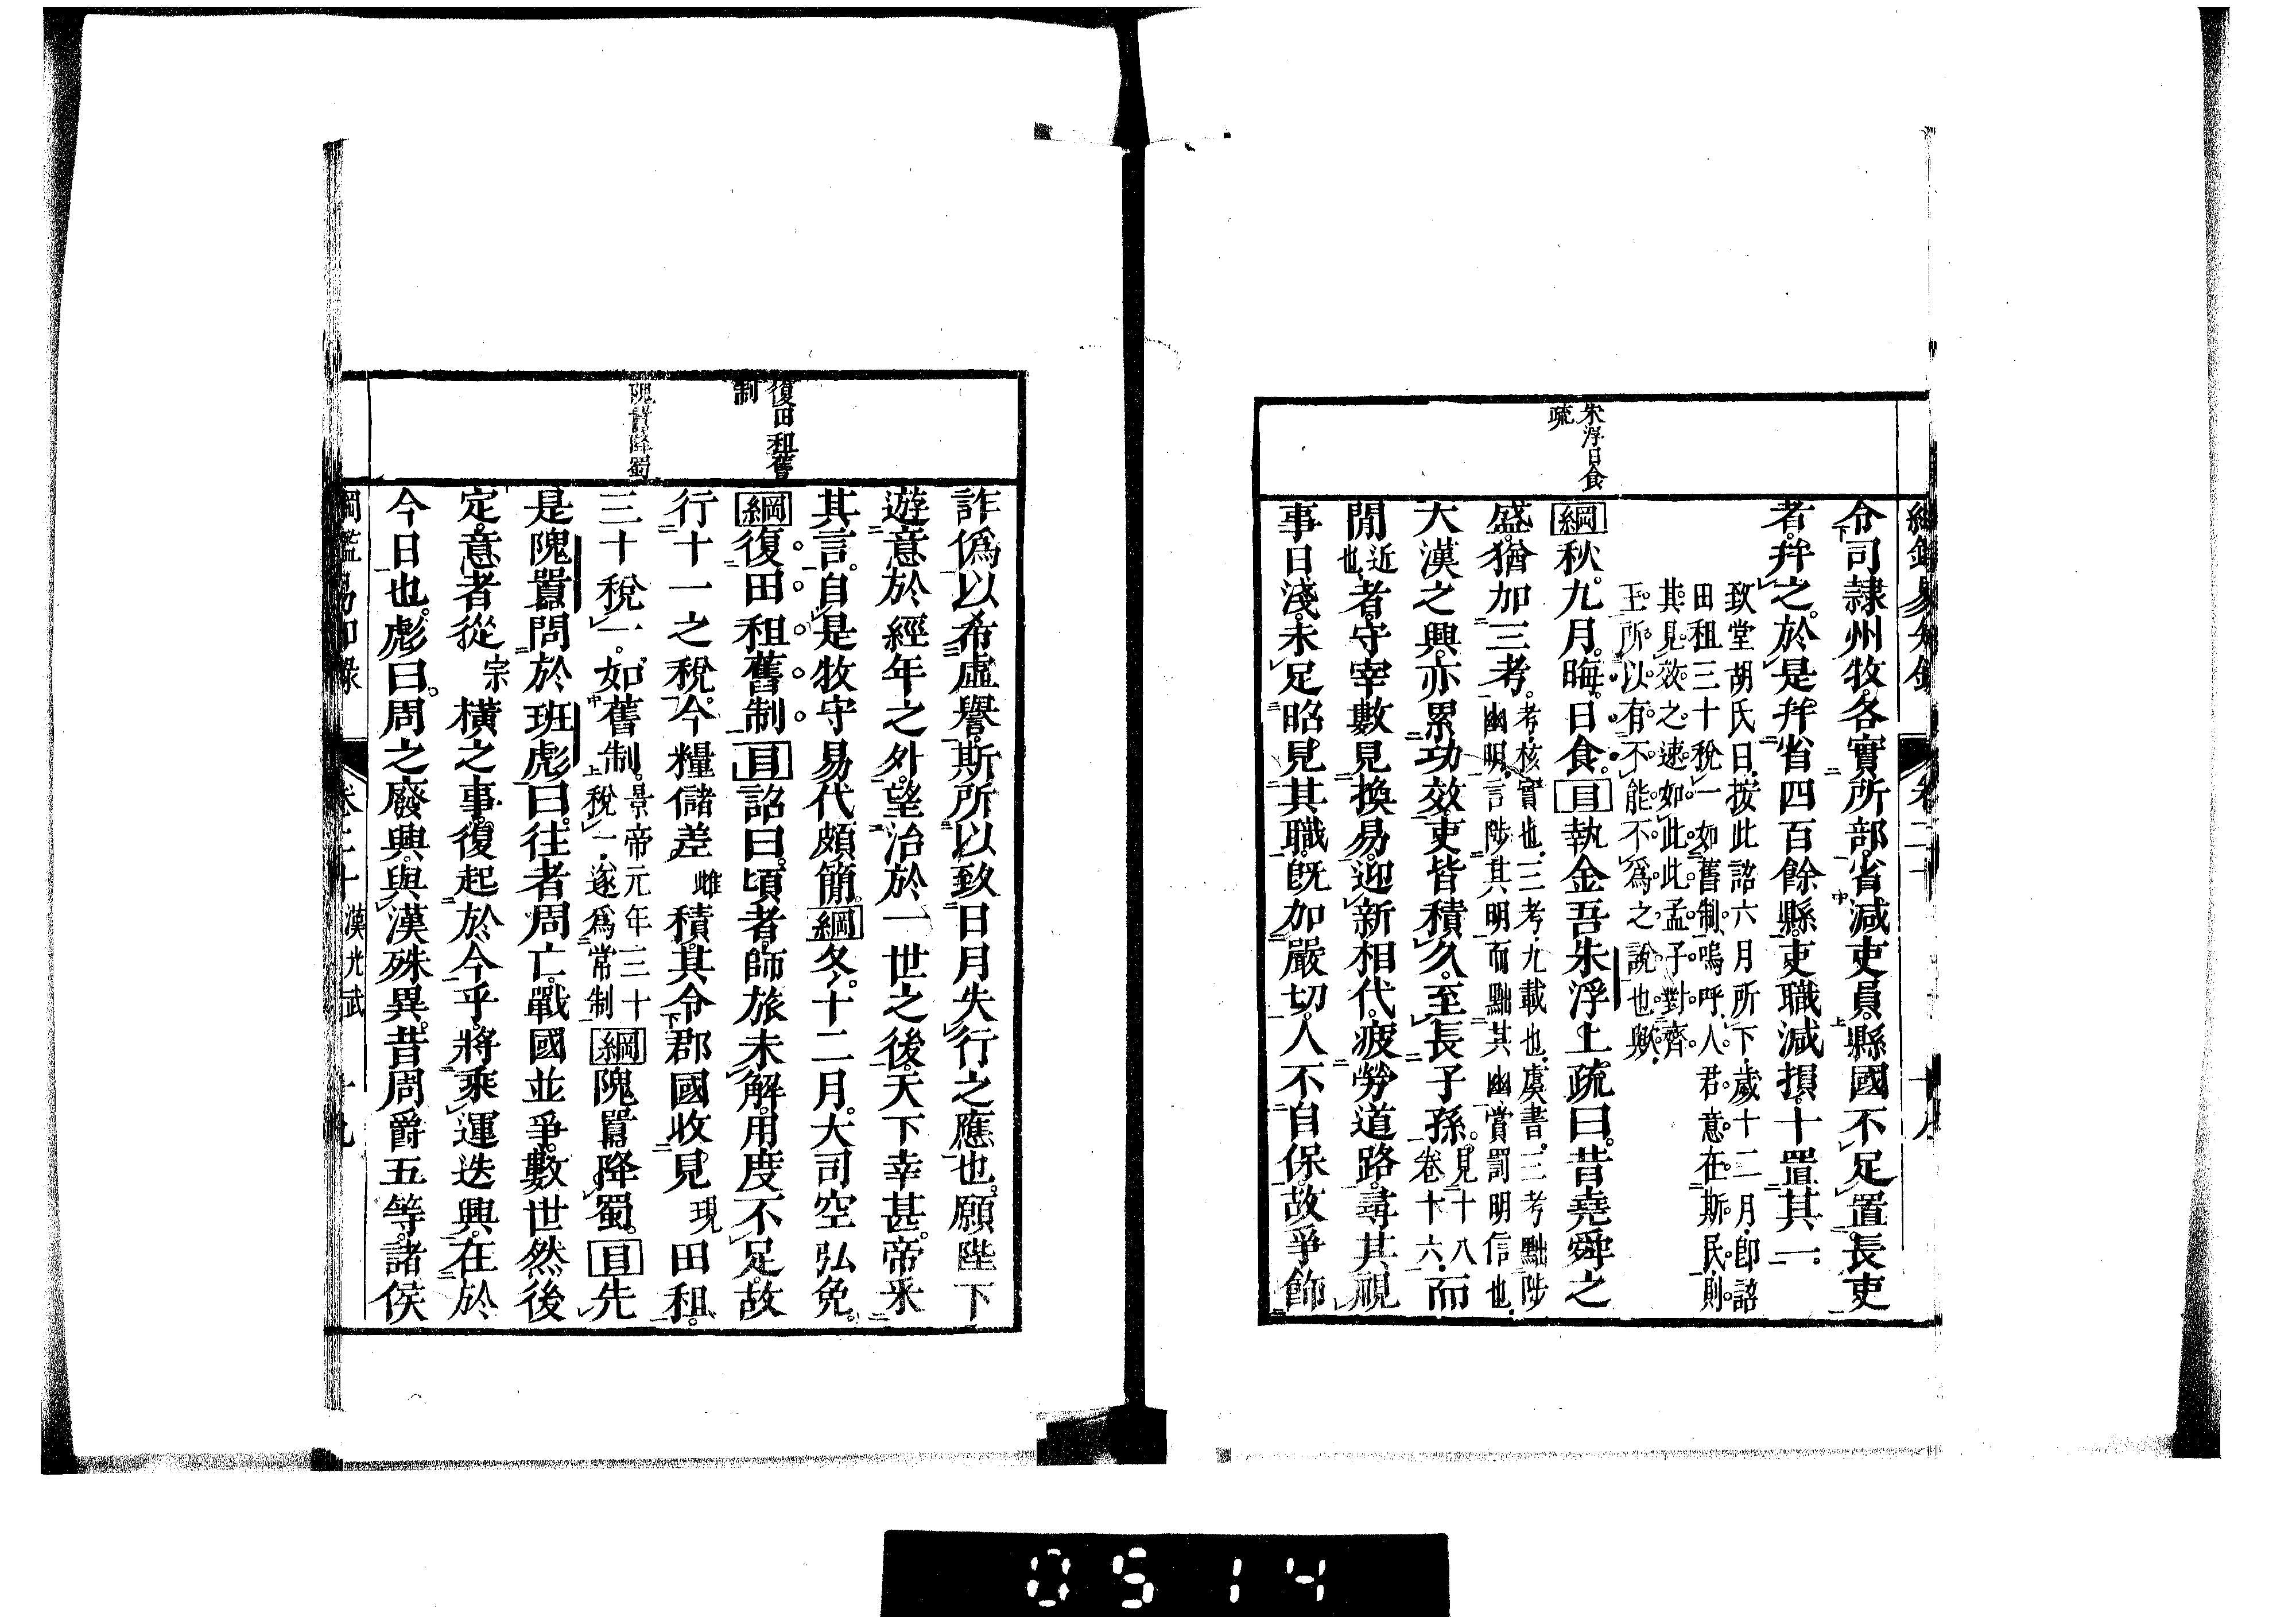 朱浮日食
疏
令司隷州牧各實所部省減吏員縣國不足置長吏
者幷之於是幷省四百餘縣吏職減損十置其一
致堂胡氏曰按此詔六月所下歲十二月卽詔
田租三十稅一如舊制嗚呼人君意在斯民則
其見效之速如此此孟子對齊
王所以有不能不爲之說也歟
綱秋九月晦日食目執金吾朱浮上疏曰昔堯舜之
盛猶加三考考核實也三考九載也虞書三考黜陟
幽明言陟其明而黜其幽賞罰明信也
大漢之興亦累功效吏皆積久至長子孫見十八
卷十六而
閒近
也者守宰數見換易迎新相代疲勞道路尋其視
事日淺未足昭見其職旣加嚴切人不自保故爭飾
復田租舊
制
隗囂降蜀
詐僞以希虛譽斯所以致日月失行之應也願陛下
遊意於經年之外望治於一世之後天下幸甚帝采
其言自是牧守易代頗簡綱冬十二月大司空弘免
綱復田租舊制目詔曰頃者師旅未解用度不足故
行十一之稅今糧儲差雌積其令郡國收見現田租
三十稅一如舊制景帝元年三十
稅一遂爲常制綱隗囂降蜀目先
是隗囂問於班彪曰往者周亡戰國並爭數世然後
定意者從宗橫之事復起於今乎將乘運迭興在於
今日也彪曰周之廢興與漢殊異昔周爵五等諸侯
綱鑑易知錄 卷二十 漢光武 十九
0514